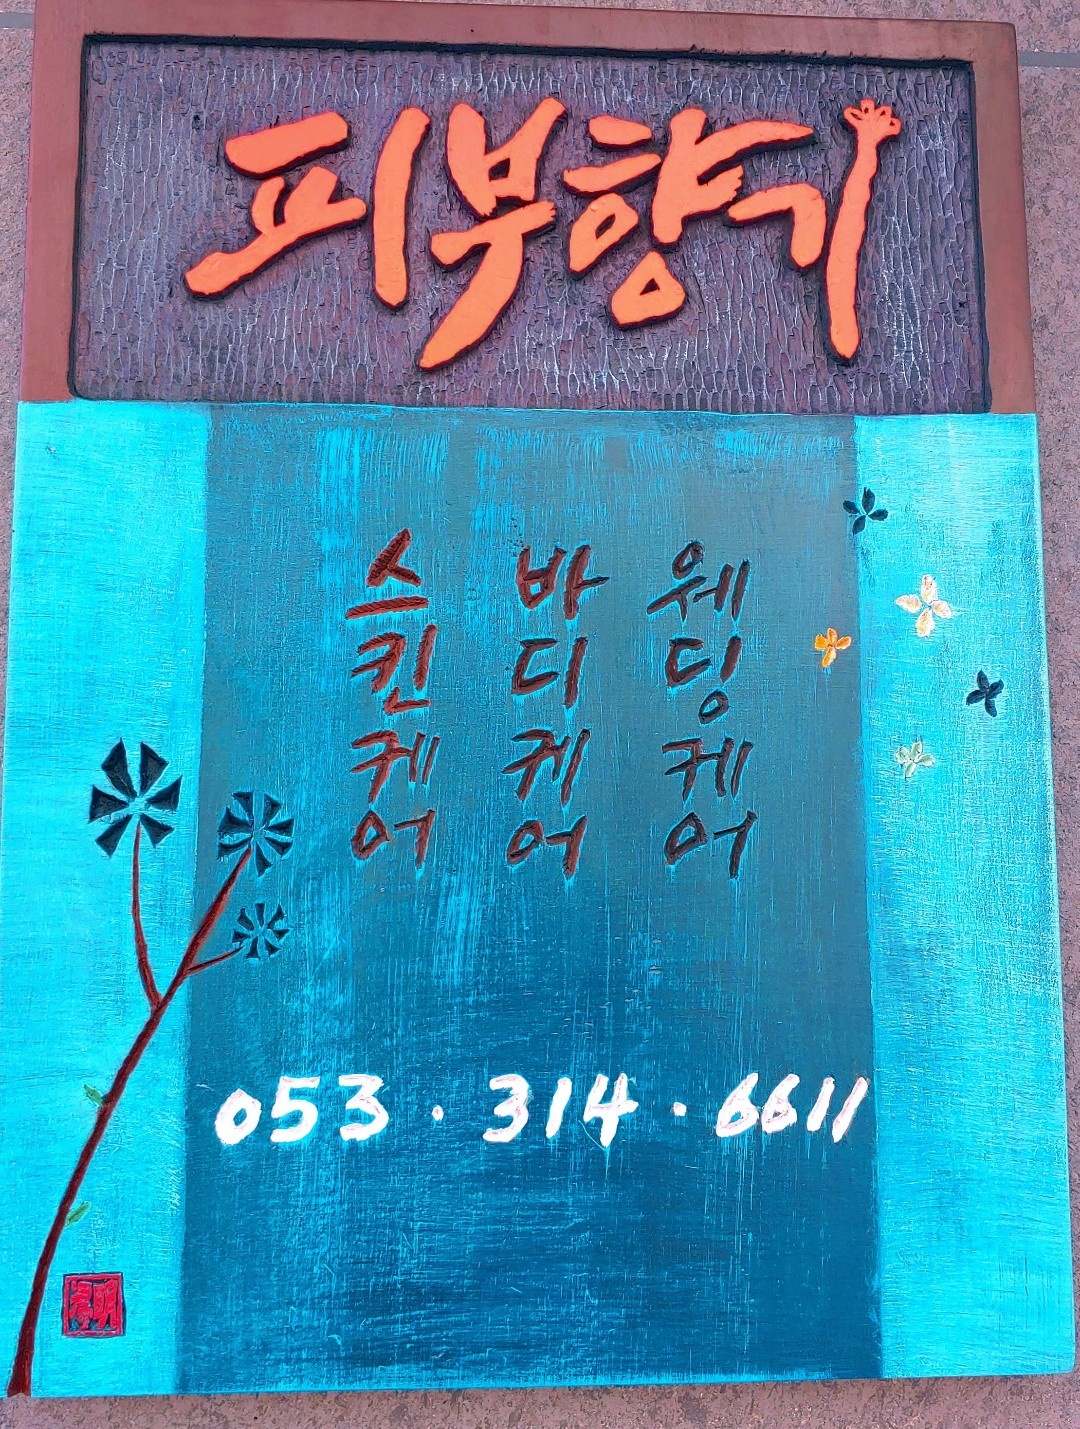 피부향기
스킨케어
바디케어
웨딩케어
053·314·6611